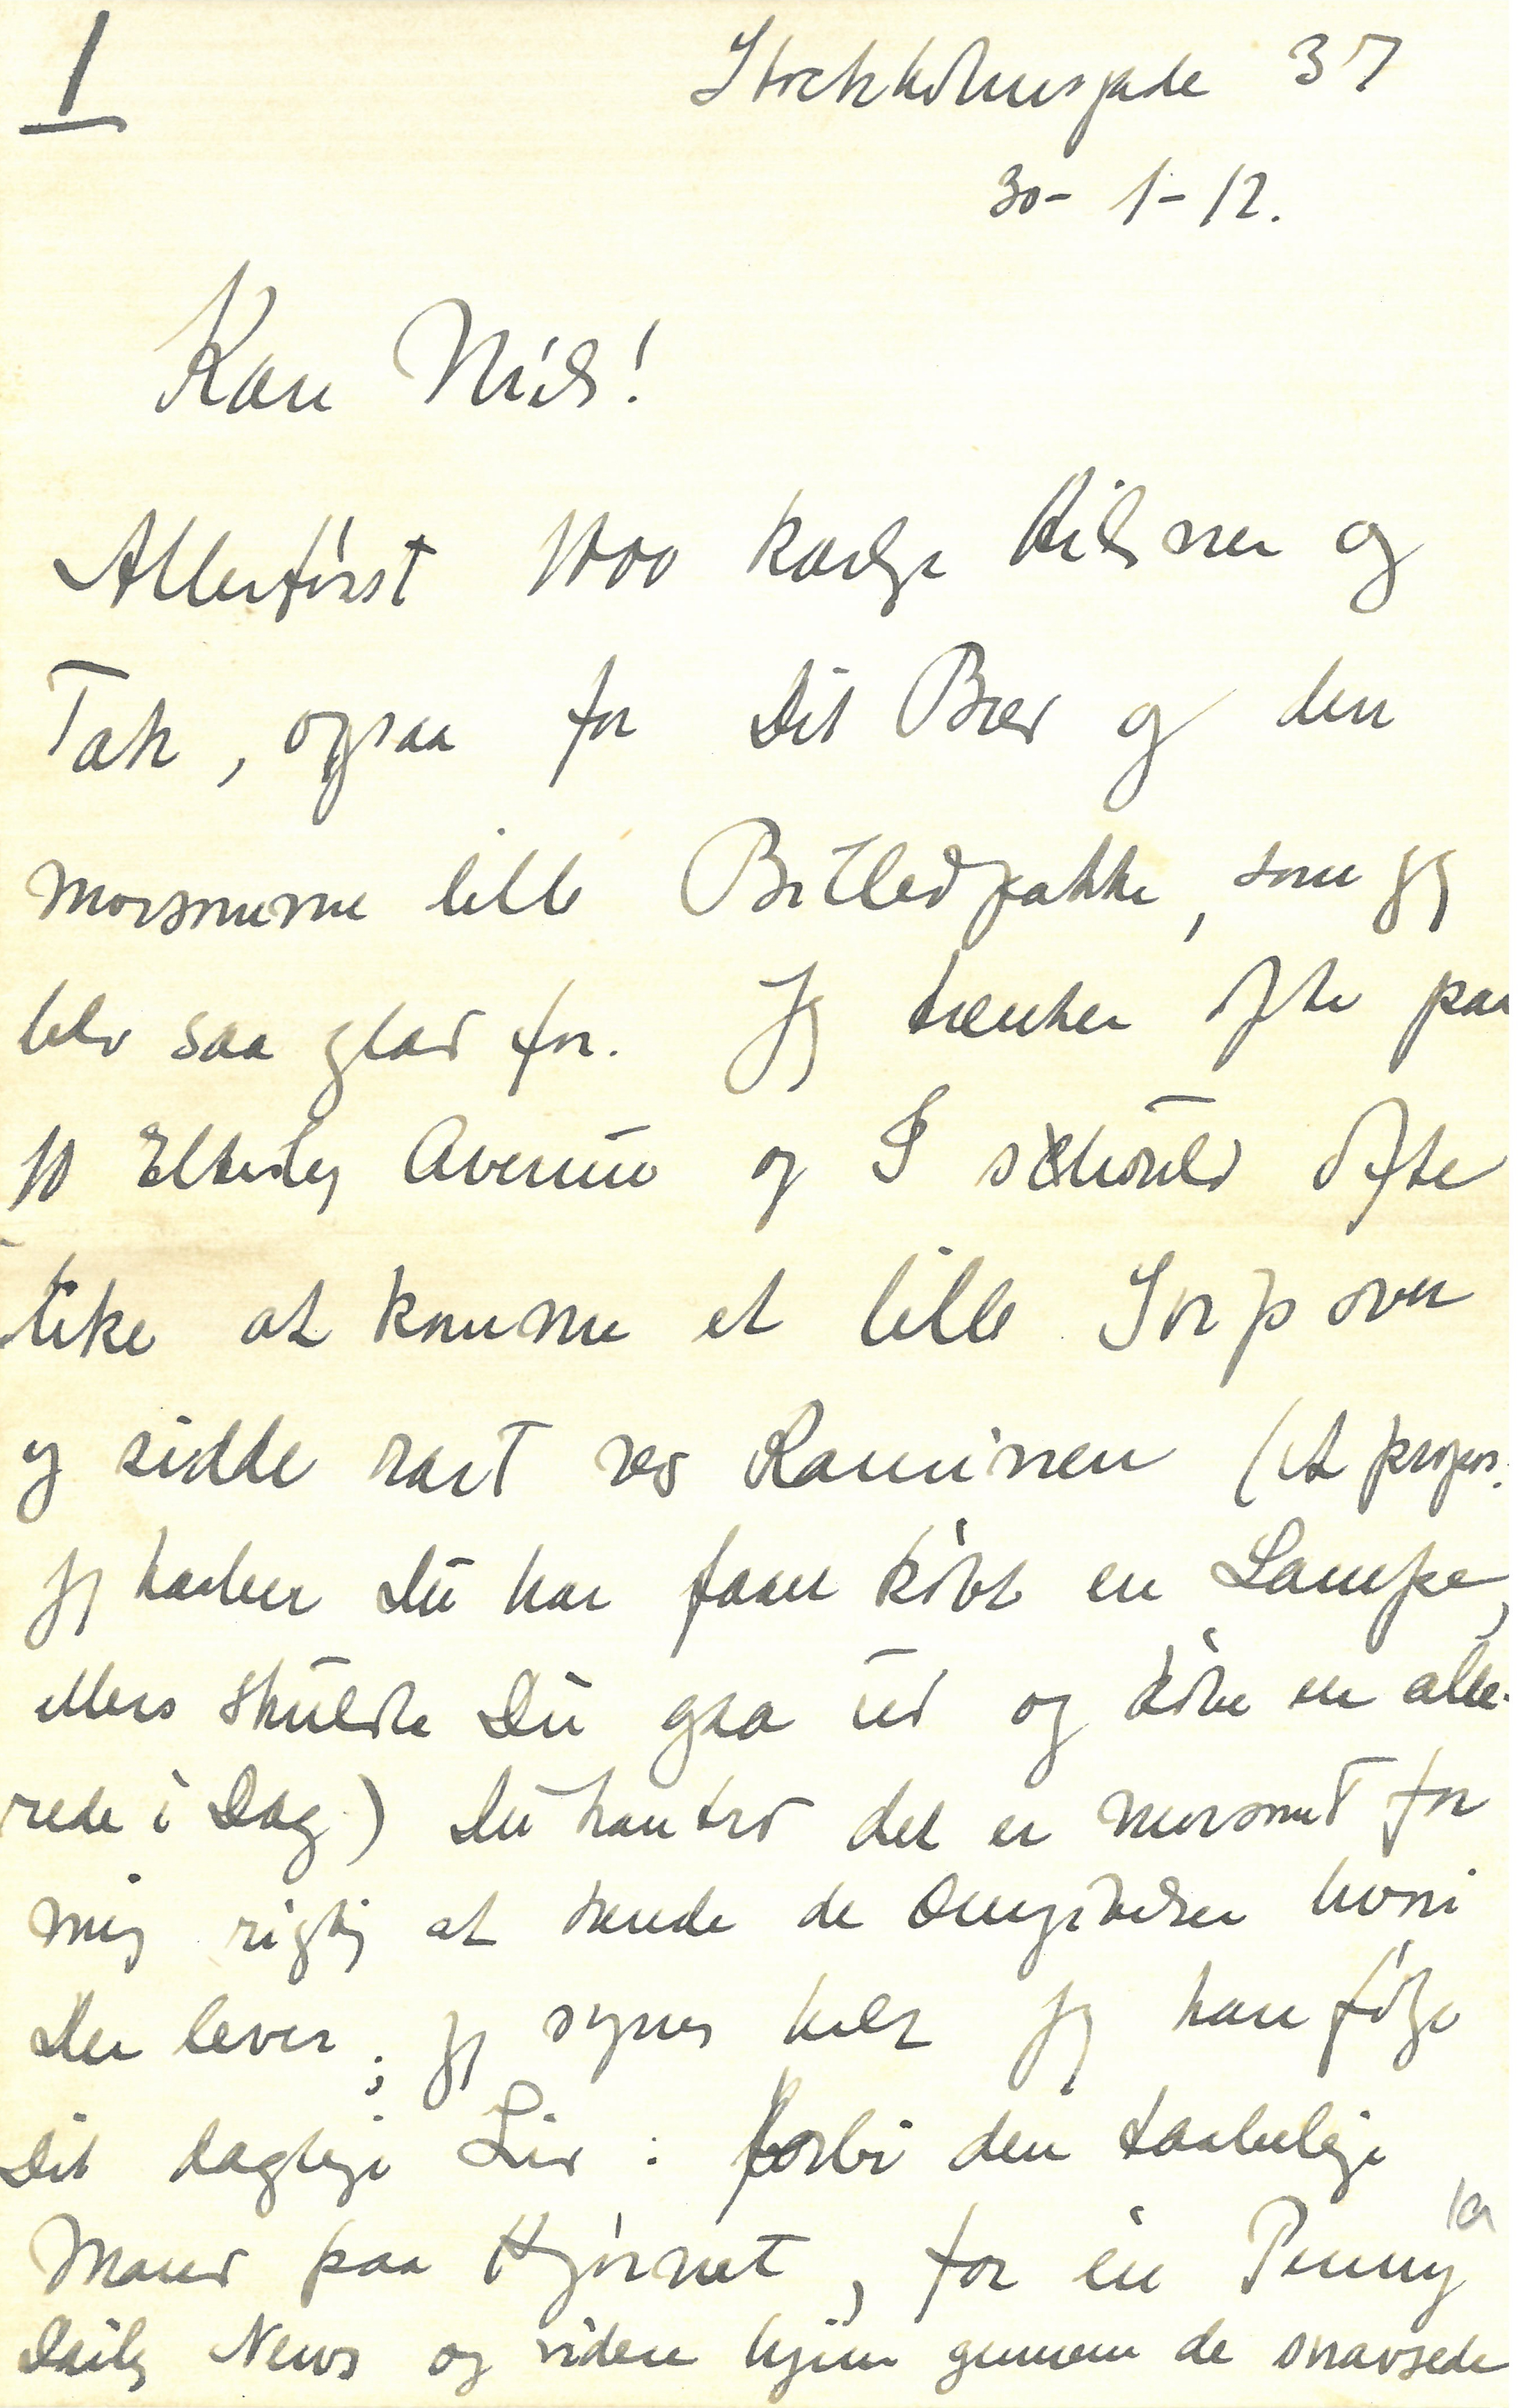 1
Stockholmsgade 37
30-1-12.
Kære Niels!
Allerførst 1000 kærlige Hilsner og
Tak, ogsaa for Dit Brev og den
morsomme lille Billedpakke, som jeg
blev saa glad for. Jeg tænker ofte paa
10 Avenue og I should ofte
like at komme et lille Svip over
og sidde rart ved Kaminen (A propos.
jeg haaber Du har faaet købt en Lampe,
ellers skulde Du gaa ud og købe en alle-
rede i Dag) Du kan tro det er morsomt for
mig rigtig at kende de Omgivelser hvori
Du lever; jeg synes helt jeg kan følge
Dit daglige Liv: forbi den taabelige
Mand paa Hjørnet, for en Penny
Daily News og videre hjem gennem de snavsede